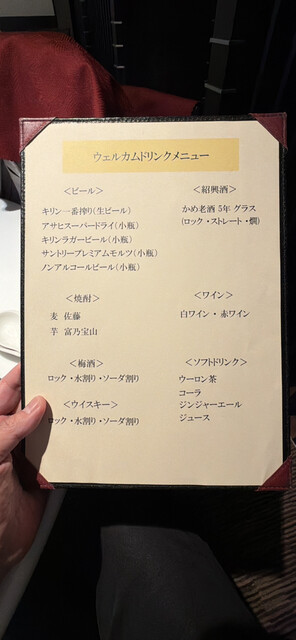 ウェルカムドリンクメニュー
＜ビール＞
キリン一番搾り（生ビール）
アサヒスーパードライ（小瓶）
キリンラガービール（小瓶）
サントリープレミアムモルツ（小瓶）
ノンアルコールビール（小瓶）
＜紹興酒＞
かめ老酒 5年 グラス
（ロック・ストレート・燗）
＜焼酎＞
麦 佐藤
芋 富乃宝山
＜ワイン＞
白ワイン・赤ワイン
＜梅酒＞
ロック・水割り・ソーダ割り
＜ウイスキー＞
ロック・水割り・ソーダ割り
＜ソフトドリンク＞
ウーロン茶
コーラ
ジンジャーエール
ジュース